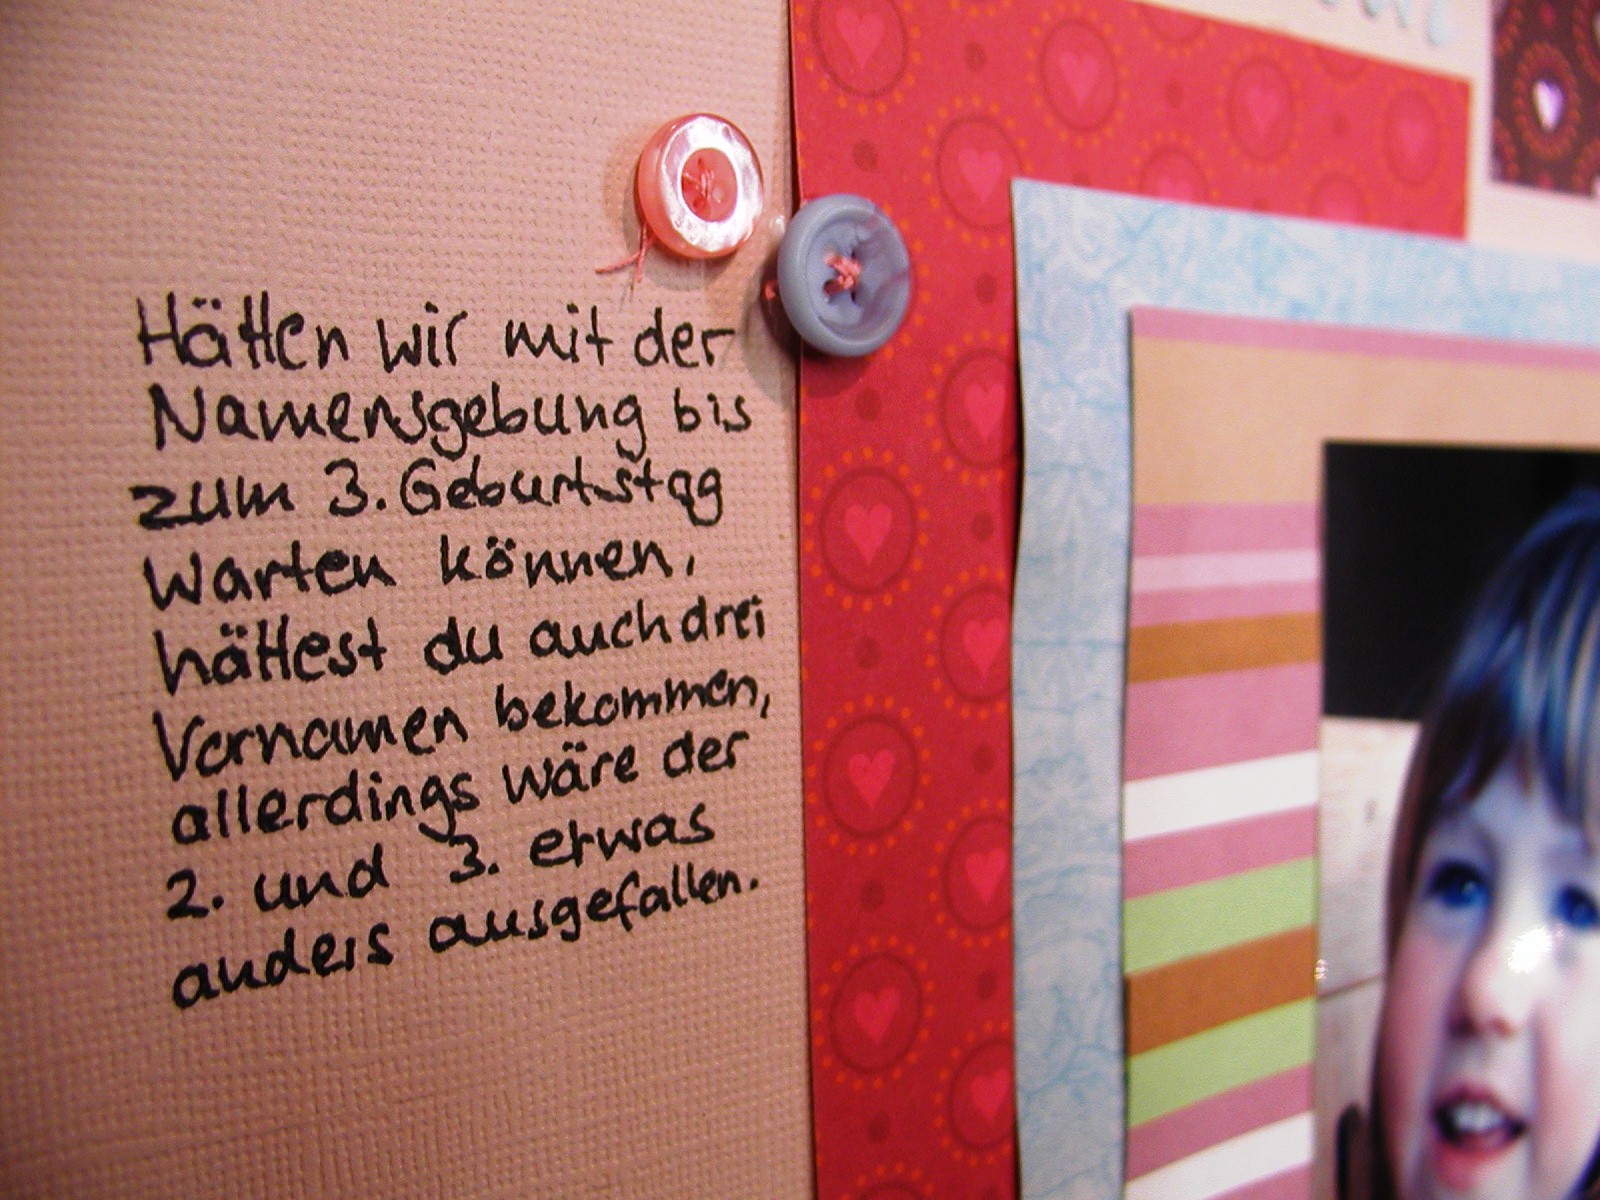 Hätten wir mit der
Namensgebung bis
zum 3. Geburtstag
warten können,
hättest du auch drei
Vornamen bekommen,
allerdings wäre der
2. und 3. etwas
anders ausgefallen.